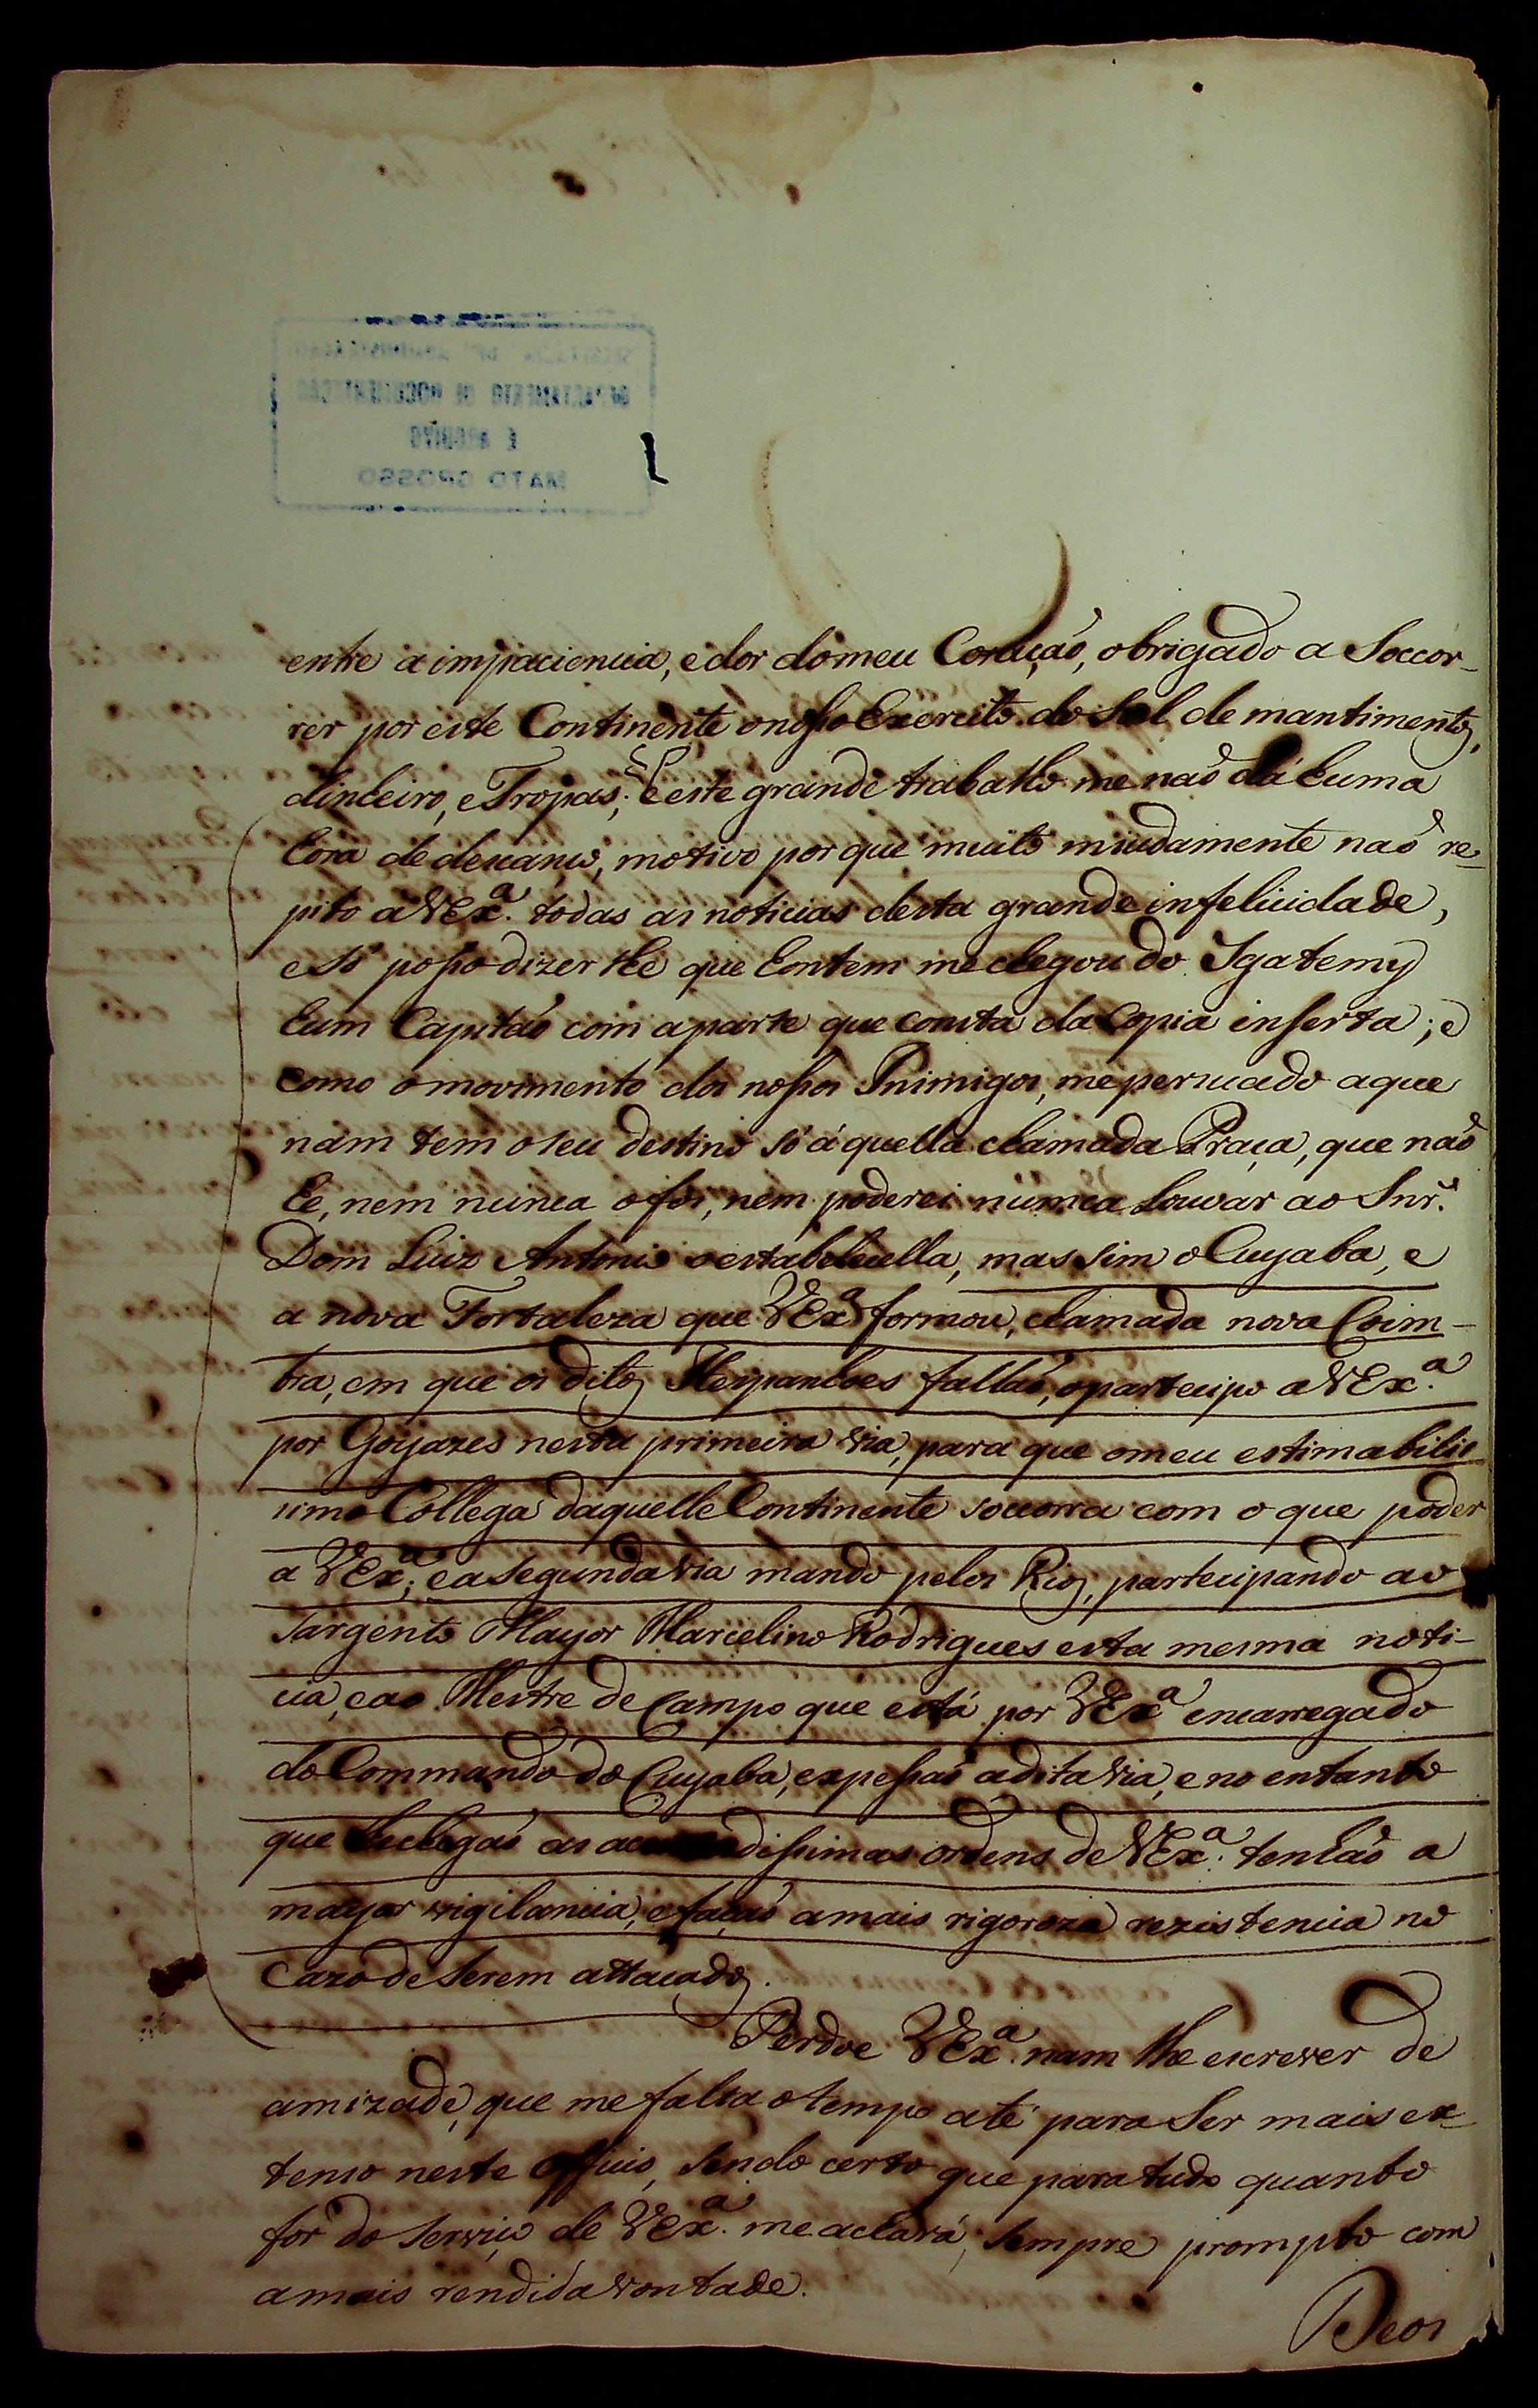 MATO GROSSO
entre a impaciencia, e dor do meu Coração, obrigado a Soccor-
rer por este Continente o nosso Exercito do Sul de mantimentos,
dinheiro, e Tropas; e este grande trabalho me naõ dá huma
hora de descanso, motivo por que muito miudamente naõ re-
pito a VExª. todas as noticias desta grande infelicidade,
e só posso dizer lhe que hontem me chegou do Igatemy
hum Capitaõ com a parte que consta da Copia inserta; e
como o movimento dos nossos Inimigos, me persuado a que
nam tem o seu destino só áquella chamada Praça, que naõ
hé, nem nunca o foi, nem poderei nunca Louvar ao Snr.
Dom Luiz Antonio o estabelecella, mas sim o Cuyaba, e
a nova Fortaleza que VExª formou, chamada nova Coim-
bra, em que os ditos Hespanhoes fallaõ, o partecipo a VExª.
por Goyazes nesta primeira via, para que o meu estimabilis
simo Collega daquelle Continente socorra com o que poder
a VExª; e a segunda via mando pelos Rios, partecipando ao
Sargento Mayor Marcelino Rodrigues esta mesma noti-
cia, e ao Mestre de Campo que está por VExª encarregado
do Commando do Cuyaba, expessaõ a dita via, e no entanto
que lhe chegaõ as dissimas ordens de VExª. tenhaõ a
mayor vigilancia, e façaõ a mais rigoroza rezistencia no
Cazo de Serem attacados.
Perdoe VExª. nam lhe escrever de
amizade, que me falta o tempo até para Ser mais ex
tenso neste Officio, Sendo certo que para tudo quanto
for do Serviço de VExª. me achará, Sempre prompto com
a mais rendida vontade.
Deos